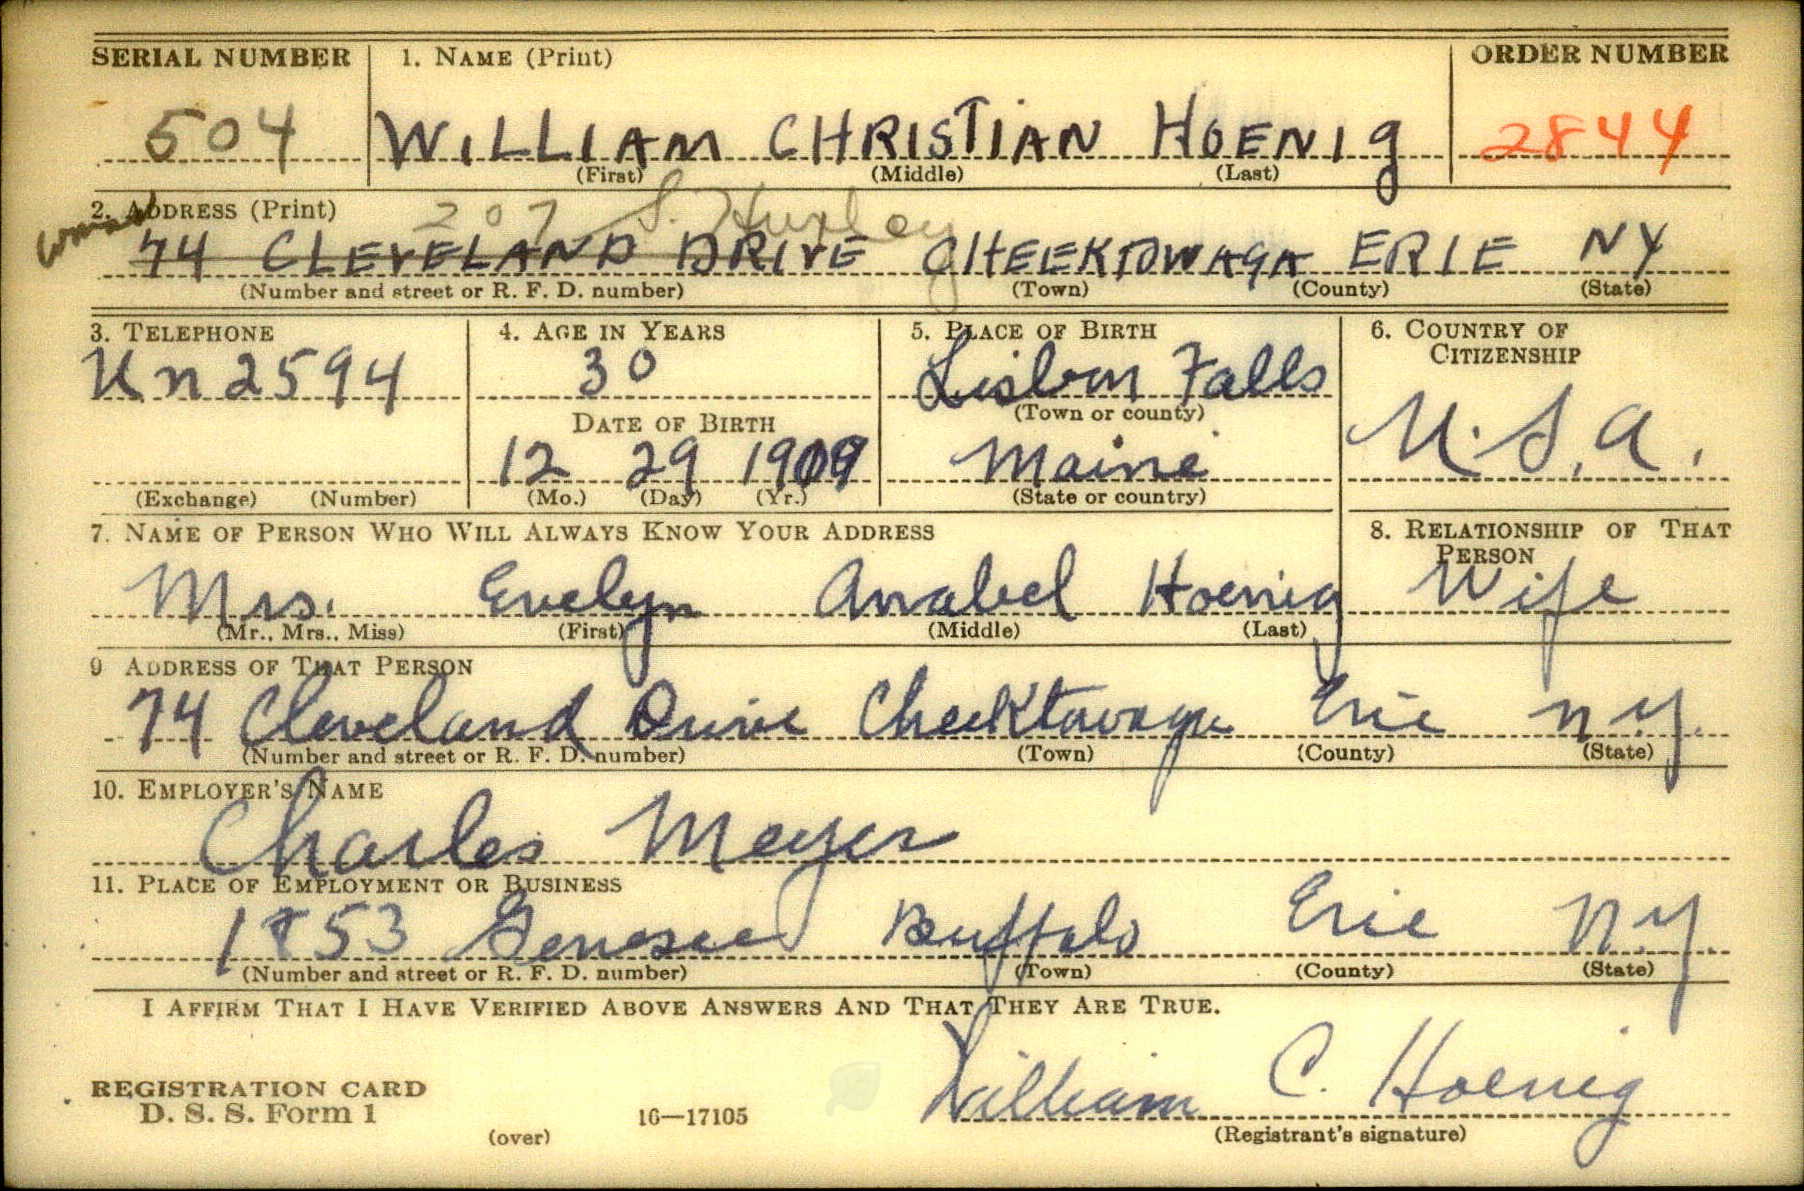 SERIAL NUMBER 1. NAME (Print) ORDER NUMBER
504 WILLIAM CHRISTIAN HOENIG 2844
(First) (Middle) (Last)
2. ADDRESS (Print) 207 S. Huxley
74 CLEVELAND DRIVE CHEEKTOWAGA ERIE NY
(Number and street or R. F. D. number) (Town) (County) (State)
3. TELEPHONE 4. AGE IN YEARS 5. PLACE OF BIRTH 6. COUNTRY OF CITIZENSHIP
Un 2594 30 Lisbon Falls
(Town or county)
DATE OF BIRTH U.S.A.
12 29 1909 Maine
(Exchange) (Number) (Mo.) (Day) (Yr.) (State or country)
7. NAME OF PERSON WHO WILL ALWAYS KNOW YOUR ADDRESS 8. RELATIONSHIP OF THAT PERSON
Mrs. Evelyn Anabel Hoenig Wife
(Mr., Mrs., Miss) (First) (Middle) (Last)
9 ADDRESS OF THAT PERSON
74 Cleveland Drive Cheektowaga Erie N.Y.
(Number and street or R. F. D. number) (Town) (County) (State)
10. EMPLOYER'S NAME
Charles Meyer
11. PLACE OF EMPLOYMENT OR BUSINESS
1853 Genesee Buffalo Erie N.Y.
(Number and street or R. F. D. number) (Town) (County) (State)
I AFFIRM THAT I HAVE VERIFIED ABOVE ANSWERS AND THAT THEY ARE TRUE.
William C. Hoenig
REGISTRATION CARD
D. S. S. Form 1 16—17105
(over) (Registrant's signature)